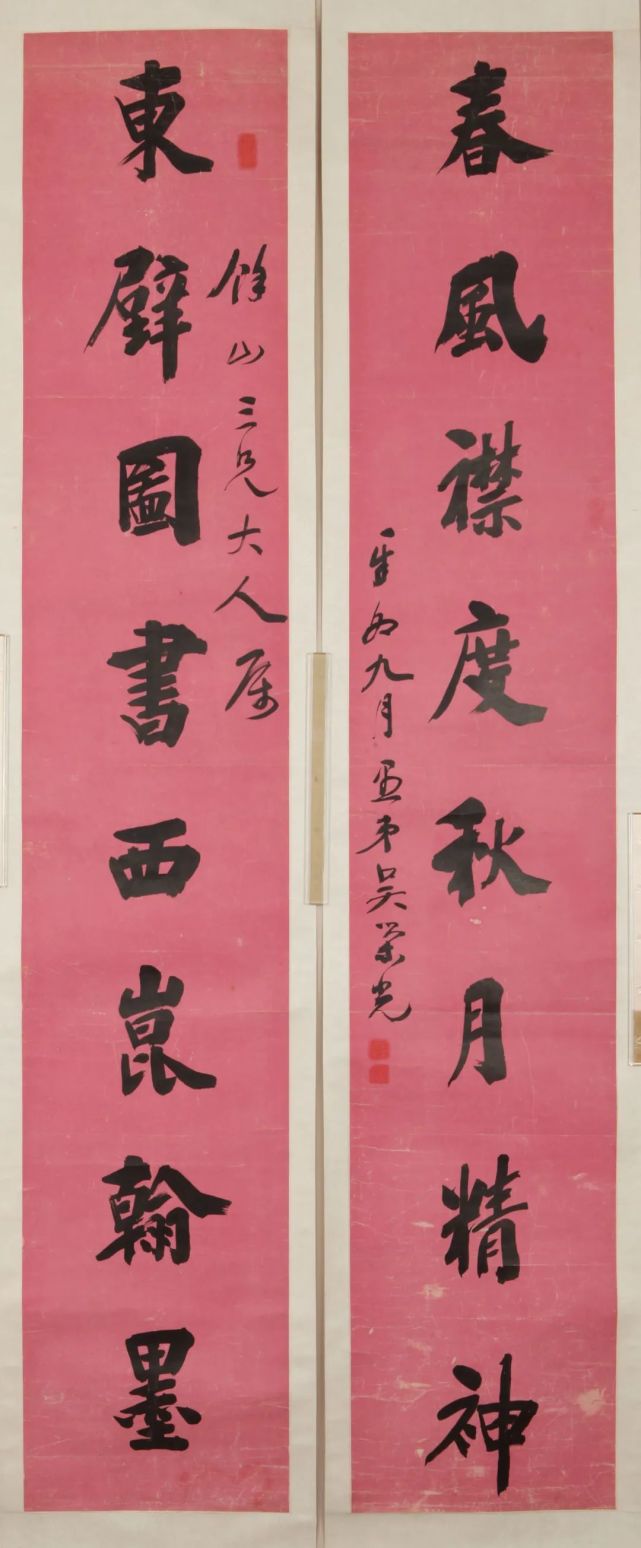 東壁圖書西崑翰墨
餘山三兄大人属
春風襟度秋月精神
辛卯九月愚弟吳榮光